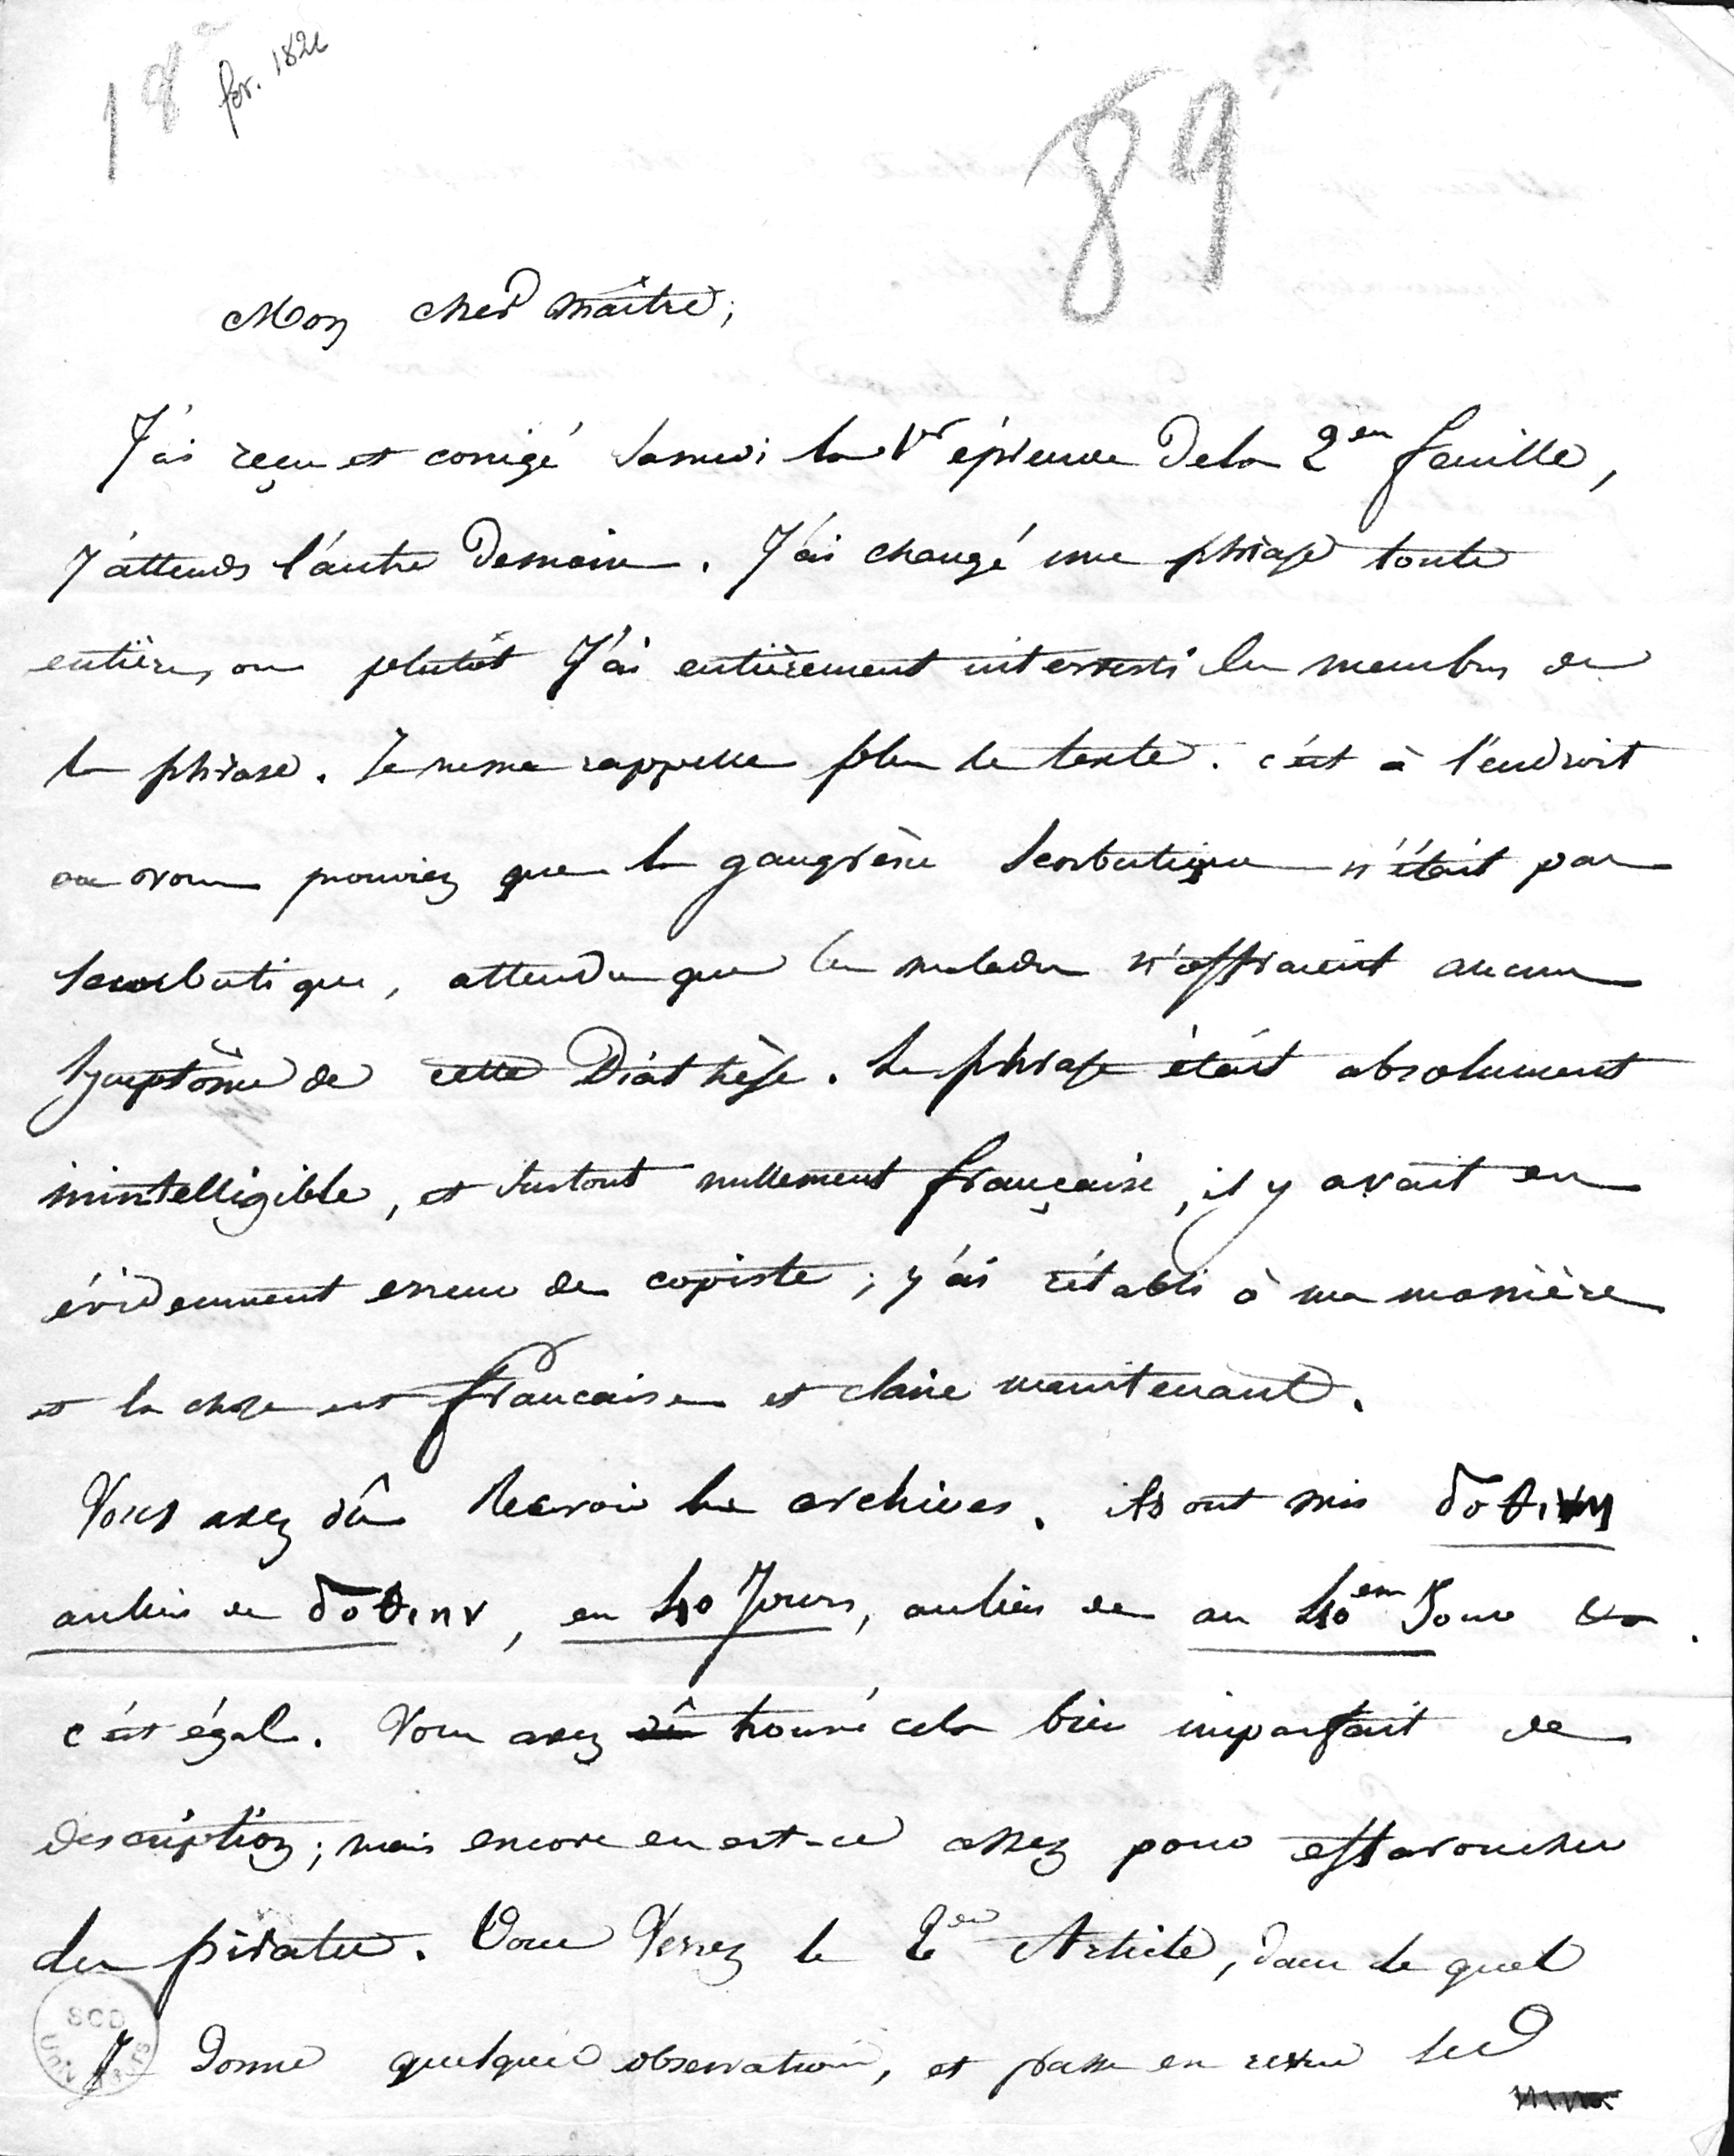 18 fev. 1826
89
Mon cher maître,
J'ai reçu et corrigé samedi la 1re épreuve de la 2em feuille,
J'attends l'autre demain. J'ai changé une phrase toute
entière, ou plutôt J'ai entièrement interverti les membres de
la phrase. Je ne me rappelle plus le texte. c'est à l'endroit
ou vous prouviez que la gangrène scorbutique n'était pas
scorbutique, attendu que les malades n'offraient aucun
symptôme de cette Diathèse. La phrase était absolument
inintelligible, et surtout nullement française, il y avait eu
évidemment erreur de copiste ; j'ai rétabli à ma manière
et la chose est francaise et claire maintenant.
Vous avez dû recevoir les archives. ils ont mis
au lieu de δοθιην, en 40 Jours, au lieu de au 40em Jour &a.
c'est égal. Vous avez dû trouvé cela bien imparfait de
description ; mais encore en est-ce assez pour effaroucher
les pirates. Vous verrez le 2em Article, dans le quel
Je donne quelques observations, et passe en revue les
SCD